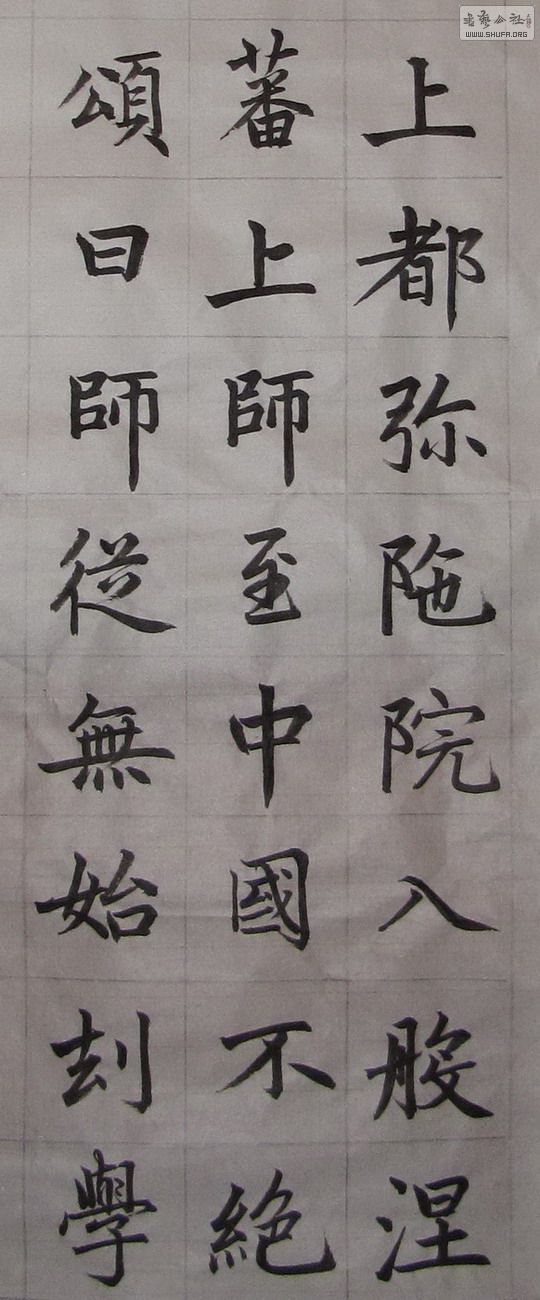 上都弥陁院入般涅
蕃上師至中國不絕
頌曰師從無始刦學
WWW.SHUFA.ORG